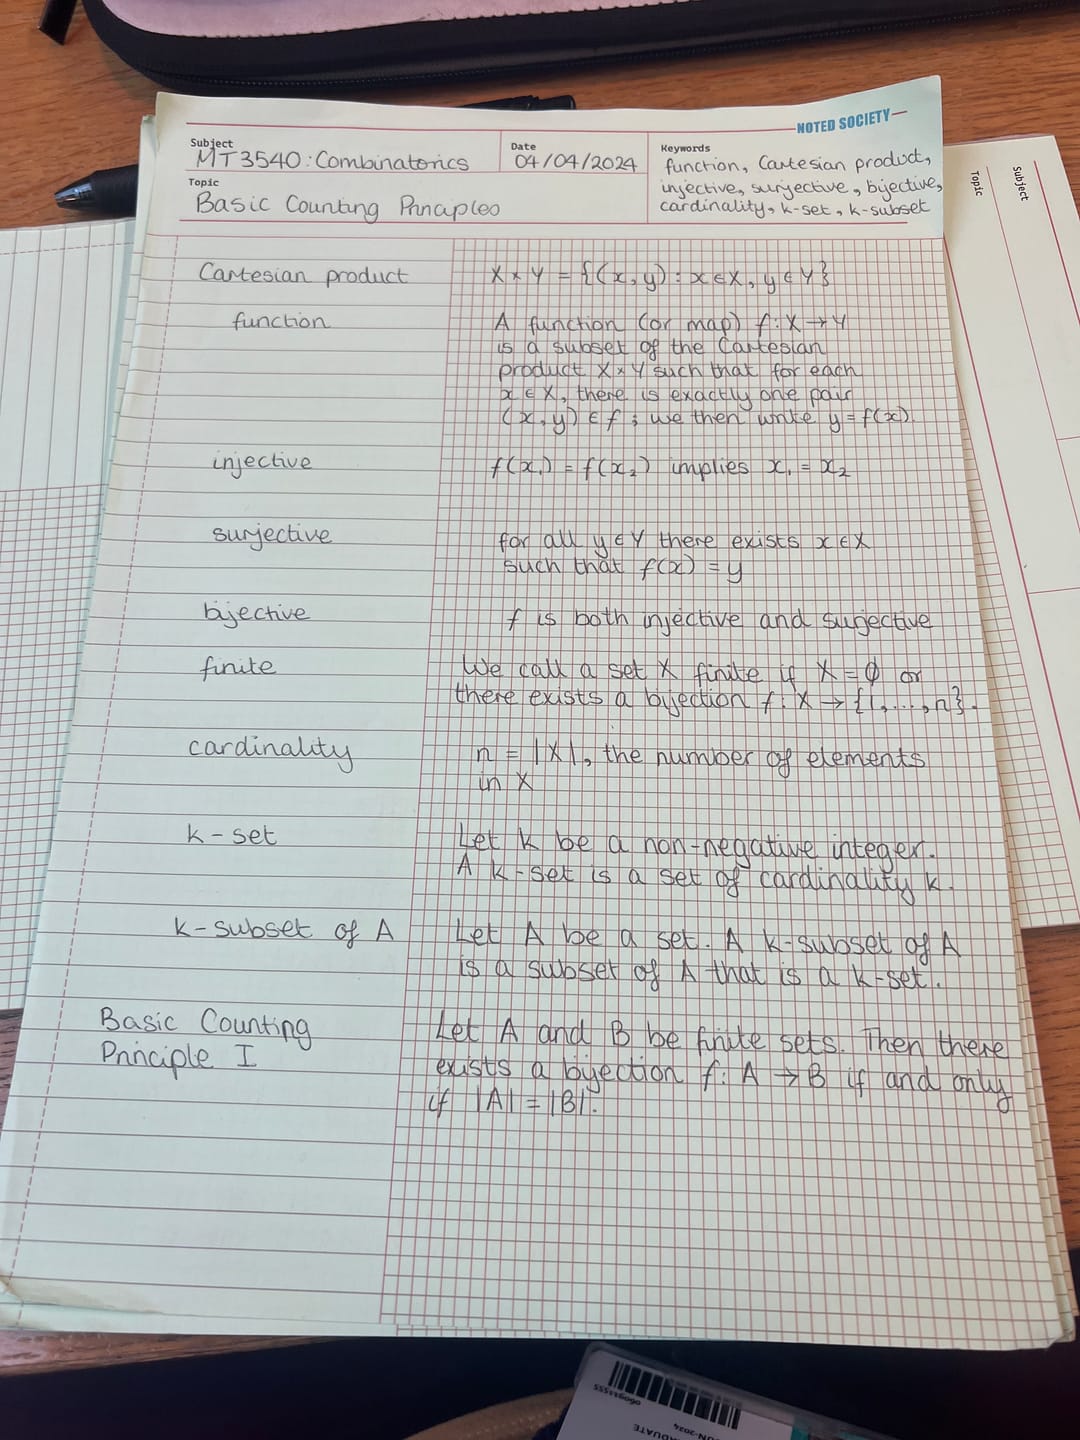 NOTED SOCIETY
Subject
MT3540: Combinatorics
Date
04/04/2024
Keywords
function, Cartesian product,
injective, surjective, bijective,
cardinality, k-set, k-subset
Topic
Basic Counting Principles
Cartesian product
X × Y = {(x, y) : x ∈ X, y ∈ Y}
function
A function (or map) f: X → Y
is a subset of the Cartesian
product X × Y such that for each
x ∈ X, there is exactly one pair
(x, y) ∈ f; we then write y = f(x).
injective
f(x₁) = f(x₂) implies x₁ = x₂
surjective
for all y ∈ Y there exists x ∈ X
such that f(x) = y
bijective
f is both injective and surjective
finite
We call a set X finite if X = ∅ or
there exists a bijection f: X → {1,...,n}.
cardinality
n = |X|, the number of elements
in X
k-set
Let k be a non-negative integer.
A k-set is a set of cardinality k.
k-subset of A
Let A be a set. A k-subset of A
is a subset of A that is a k-set.
Basic Counting
Principle I
Let A and B be finite sets. Then there
exists a bijection f: A → B if and only
if |A| = |B|.
Topic
Subject